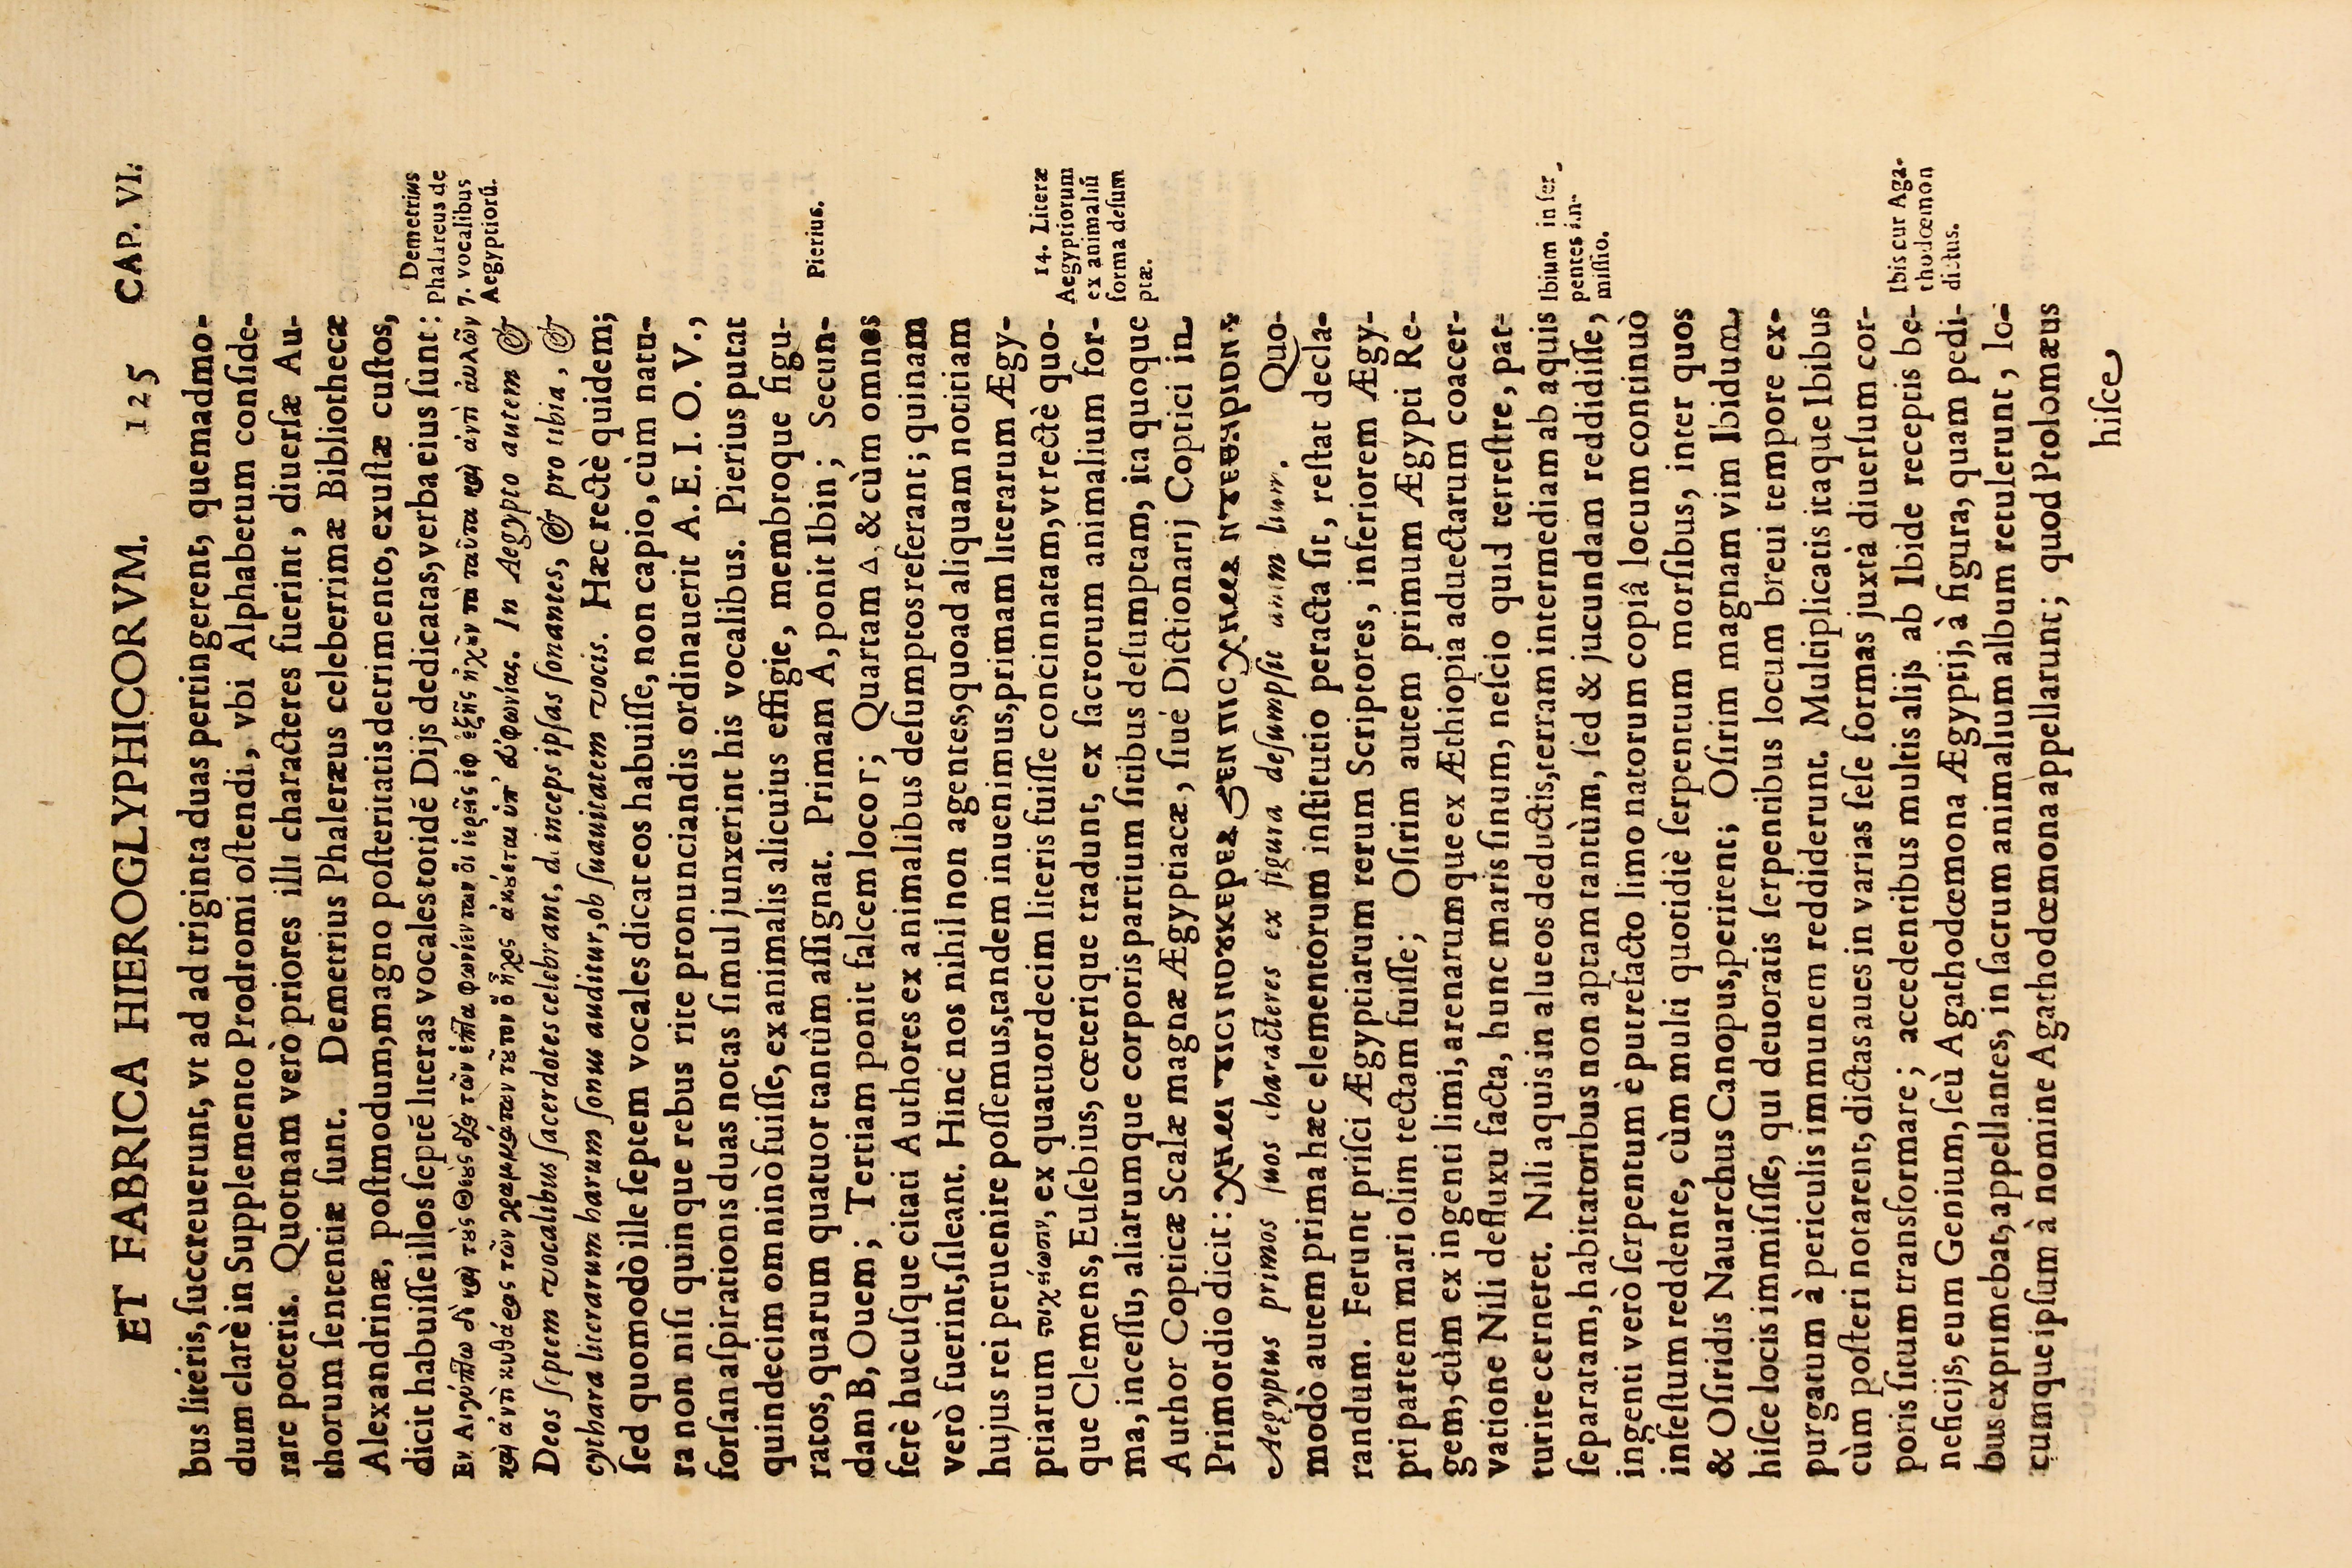 ET FABRICA HIEROGLYPHICORVM. 125 CAP. VI.
bus literis, succreuerunt, vt ad ad triginta duas pertingerent, quemadmo-
dum clarè in Supplemento Prodromi ostendi, vbi Alphabetum conside-
rare poteris. Quotnam verò priores illi characteres fuerint, diuersæ Au-
thorum sententiæ sunt. Demetrius Phaleræus celeberrimæ Bibliothecæ
Alexandrinæ, postmodum, magno posteritatis detrimento, exustæ custos,
dicit habuisse illos septē literas vocales totidē Dijs dedicatas, verba eius sunt:
Demetrius
Phalareus de
7. vocalibus
Aegyptiorū.
Deos septem vocalibus sacerdotes celebrant, deinceps ipsas sonantes, & pro tibia, &
cythara literarum harum sonus auditur, ob suauitatem vocis. Hæc rectè quidem;
sed quomodò ille septem vocales dicat eos habuisse, non capio, cùm natu-
ra non nisi quinque rebus rite pronunciandis ordinauerit A. E. I. O. V.,
forsan aspirationis duas notas simul junxerint his vocalibus. Pierius putat
quindecim omninò fuisse, ex animalis alicuius effigie, membroque figu-
ratos, quarum quatuor tantùm assignat. Primam A, ponit Ibin; Secun-
Pierius.
dam B, Ouem; Tertiam ponit falcem loco Γ; Quartam Δ, & cùm omnes
ferè hucusque citati Authores ex animalibus desumptos referant; quinam
verò fuerint, sileant. Hinc nos nihil non agentes, quoad aliquam notitiam
hujus rei peruenire possemus, tandem inuenimus, primam literarum Ægy-
ptiarum ϛοιχείωσιν, ex quatuordecim literis fuisse concinnatam, vt rectè quo-
14. Literæ
Aegyptiorum
ex animaliū
forma desum
ptæ.
que Clemens, Eusebius, cœterique tradunt, ex sacrorum animalium for-
ma, incessu, aliarumque corporis partium sitibus desumptam, ita quoque
Author Copticæ Scalæ magnæ Ægyptiacæ, siué Dictionarij Coptici in
Primordio dicit:
Aegyptus primos suos characteres ex figura desumpsit animalium. Quo-
modò autem prima hæc elementorum institutio peracta sit, restat decla-
randum. Ferunt prisci Ægyptiarum rerum Scriptores, inferiorem Ægy-
pti partem mari olim tectam fuisse; Osirim autem primum Ægypti Re-
gem, cùm ex ingenti limi, arenarumque ex Æthiopia aduectarum coacer-
vatione Nili defluxu facta, hunc maris sinum, nescio quid terrestre, pat-
turire cerneret. Nili aquis in alueos deductis, terram intermediam ab aquis
Ibium in ser-
pentes im-
missio.
separatam, habitatoribus non aptam tantùm, sed & jucundam reddidisse,
ingenti verò serpentum è putrefacto limo natorum copiâ locum continuò
infestum reddente, cùm multi quotidiè serpentum morsibus, inter quos
& Osiridis Nauarchus Canopus, perirent; Osirim magnam vim Ibidum
hisce locis immisisse, qui deuoratis serpentibus locum breui tempore ex-
purgatum à periculis immunem reddiderunt. Multiplicatis itaque Ibibus
cùm posteri notarent, dictas aues in varias sese formas juxtà diuersum cor-
poris situm transformare; accedentibus multis alijs ab Ibide receptis be-
Ibis cur Aga-
thodœmon
dictus.
neficijs, eum Genium, seù Agathodœmona Ægyptij, à figura, quam pedi-
bus exprimebat, appellantes, in sacrum animalium album retulerunt, lo-
cumque ipsum à nomine Agathodœmona appellarunt; quod Ptolomæus
hisce